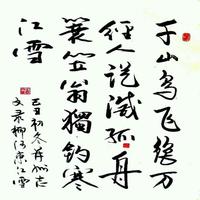 千山鸟飞绝万
径人踪滅孤舟
蓑笠翁獨钓寒
江雪
己丑初冬
录柳河东江雪